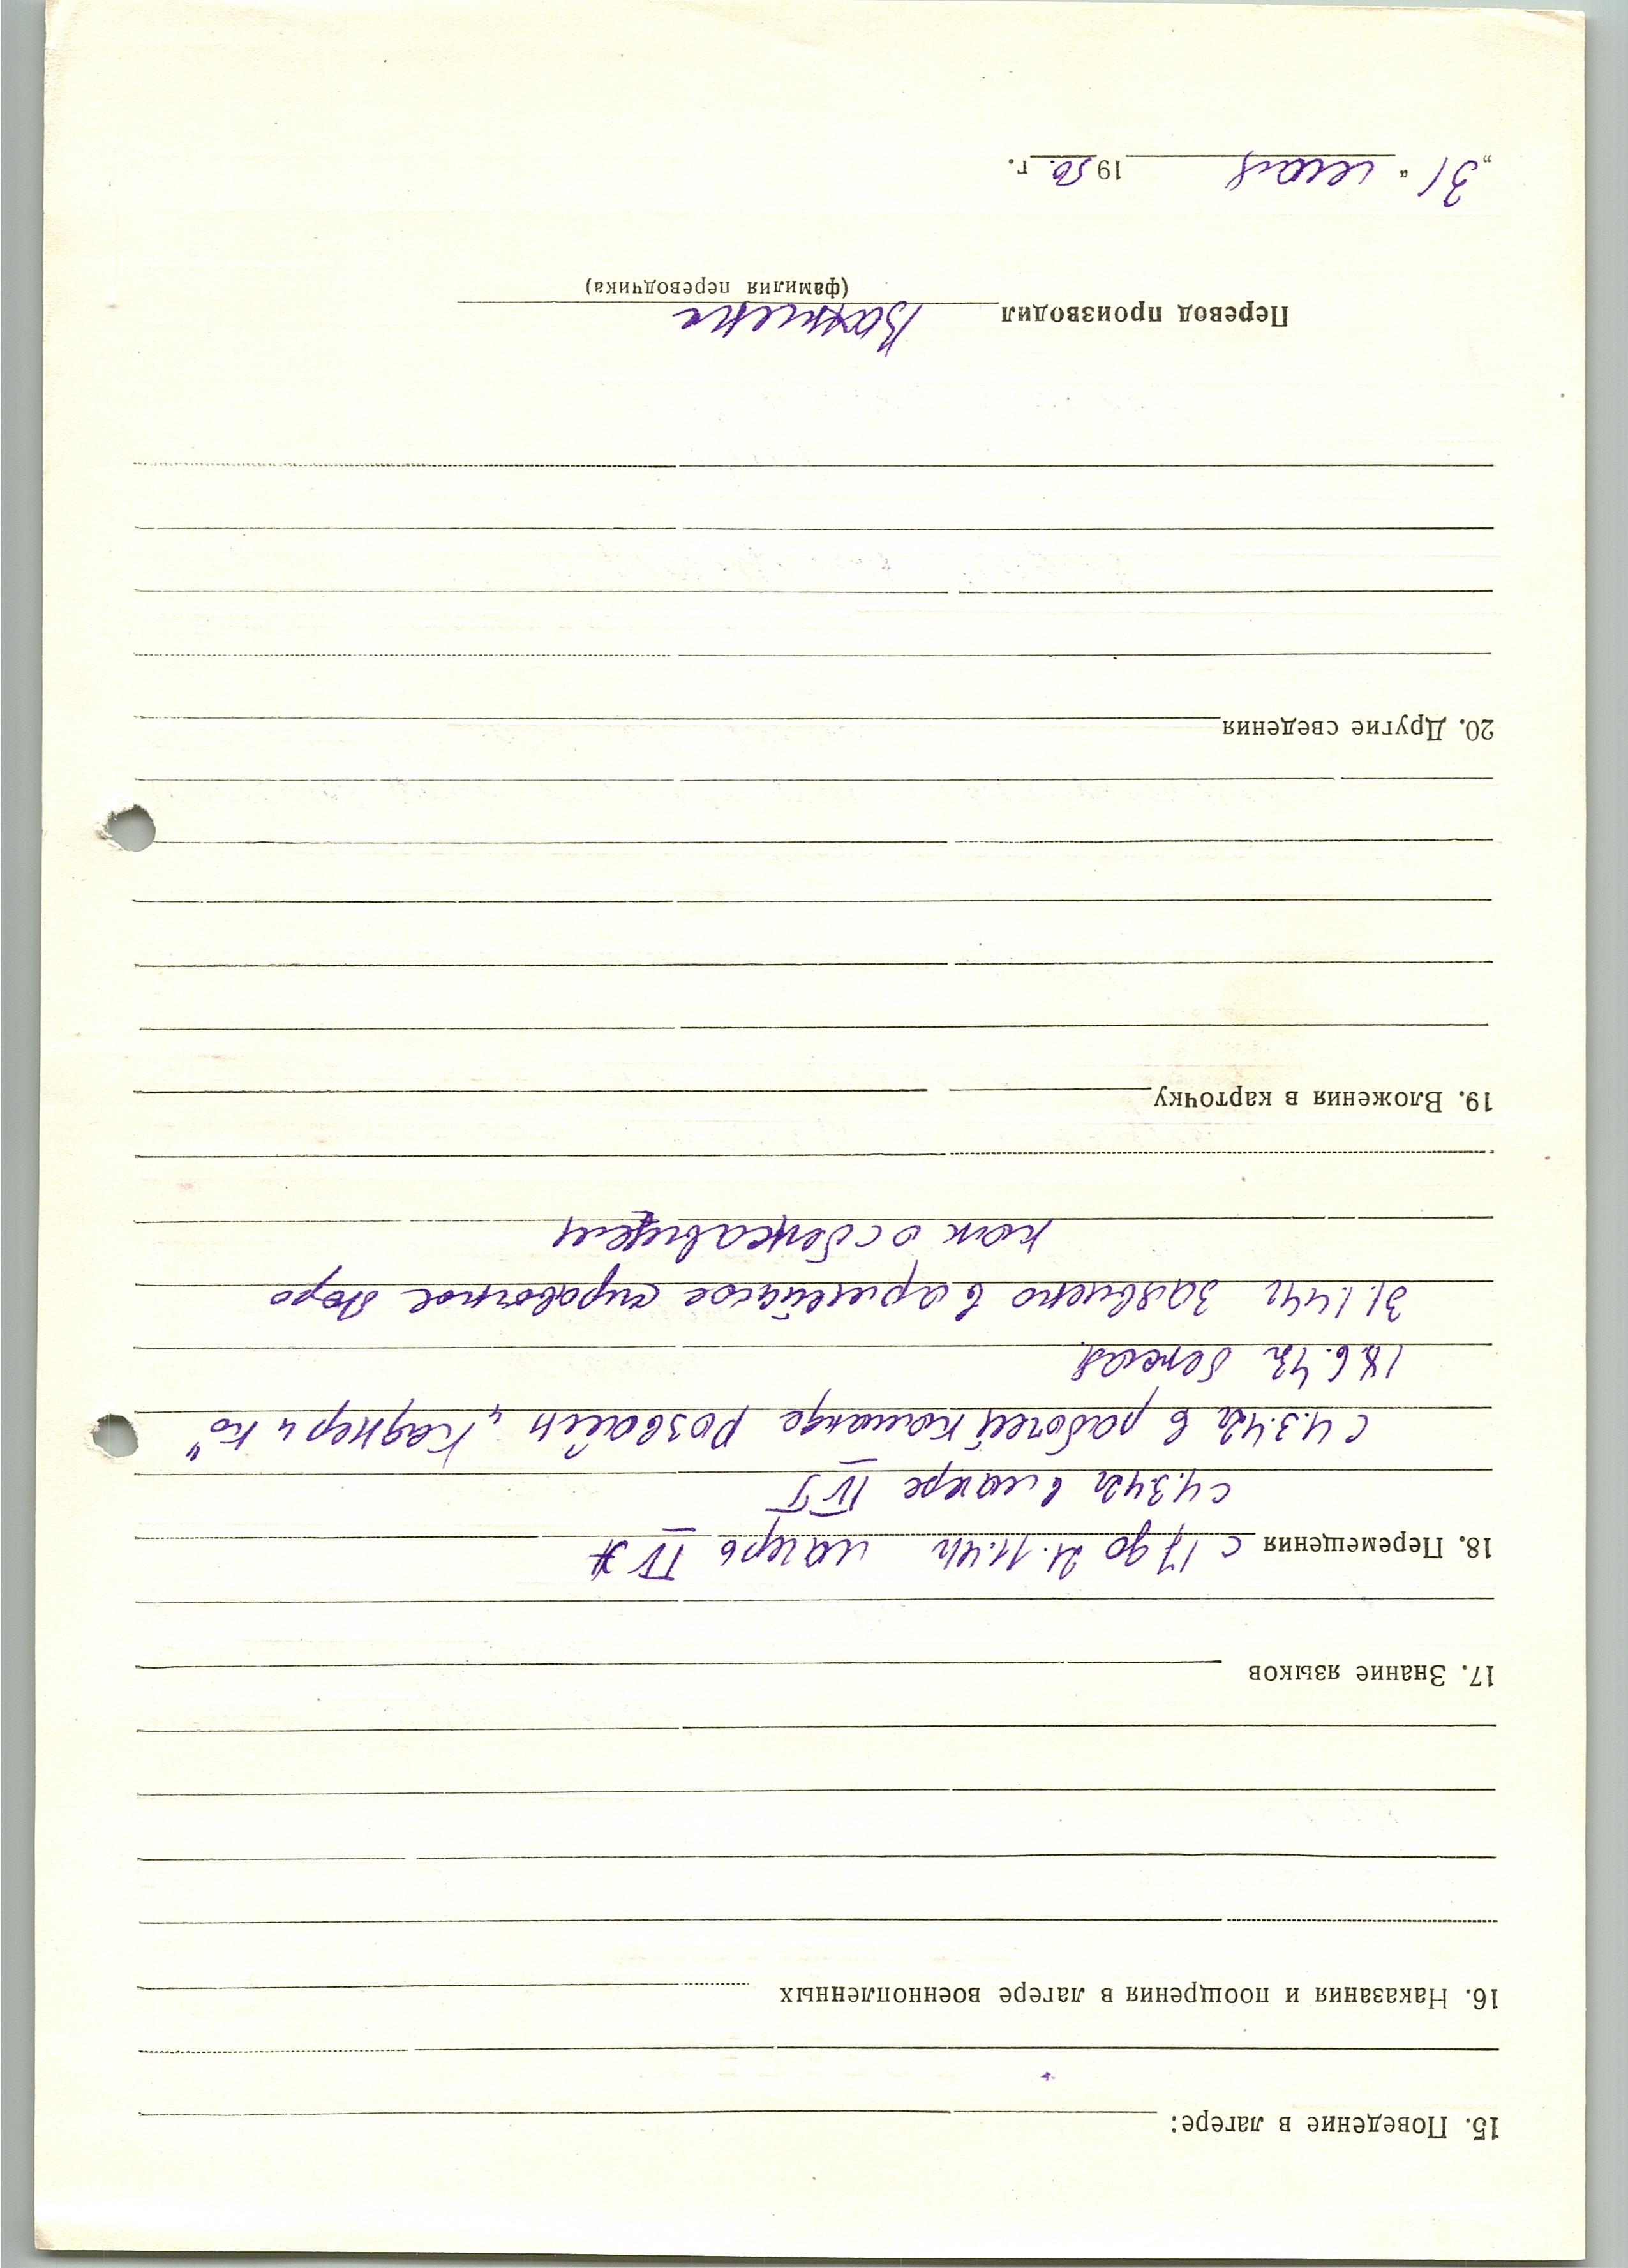 15. Поведение в лагере:
16. Наказания и поощрения в лагере военнопленных
17. Знание языков
18. Перемещения с 17 до 21.11.41г лагерь IV
с 4.3.42г в лагере IV
с 4.3.42г в рабочей команде Розвайн „Каднер и Ко“
18.6.42г бежал
31.1.44г заявлено в армейское справочное бюро
как о сбежавшем
19. Вложения в карточку
20. Другие сведения
Перевод производил
(фамилия переводчика)
„31“ мая 1950 г.